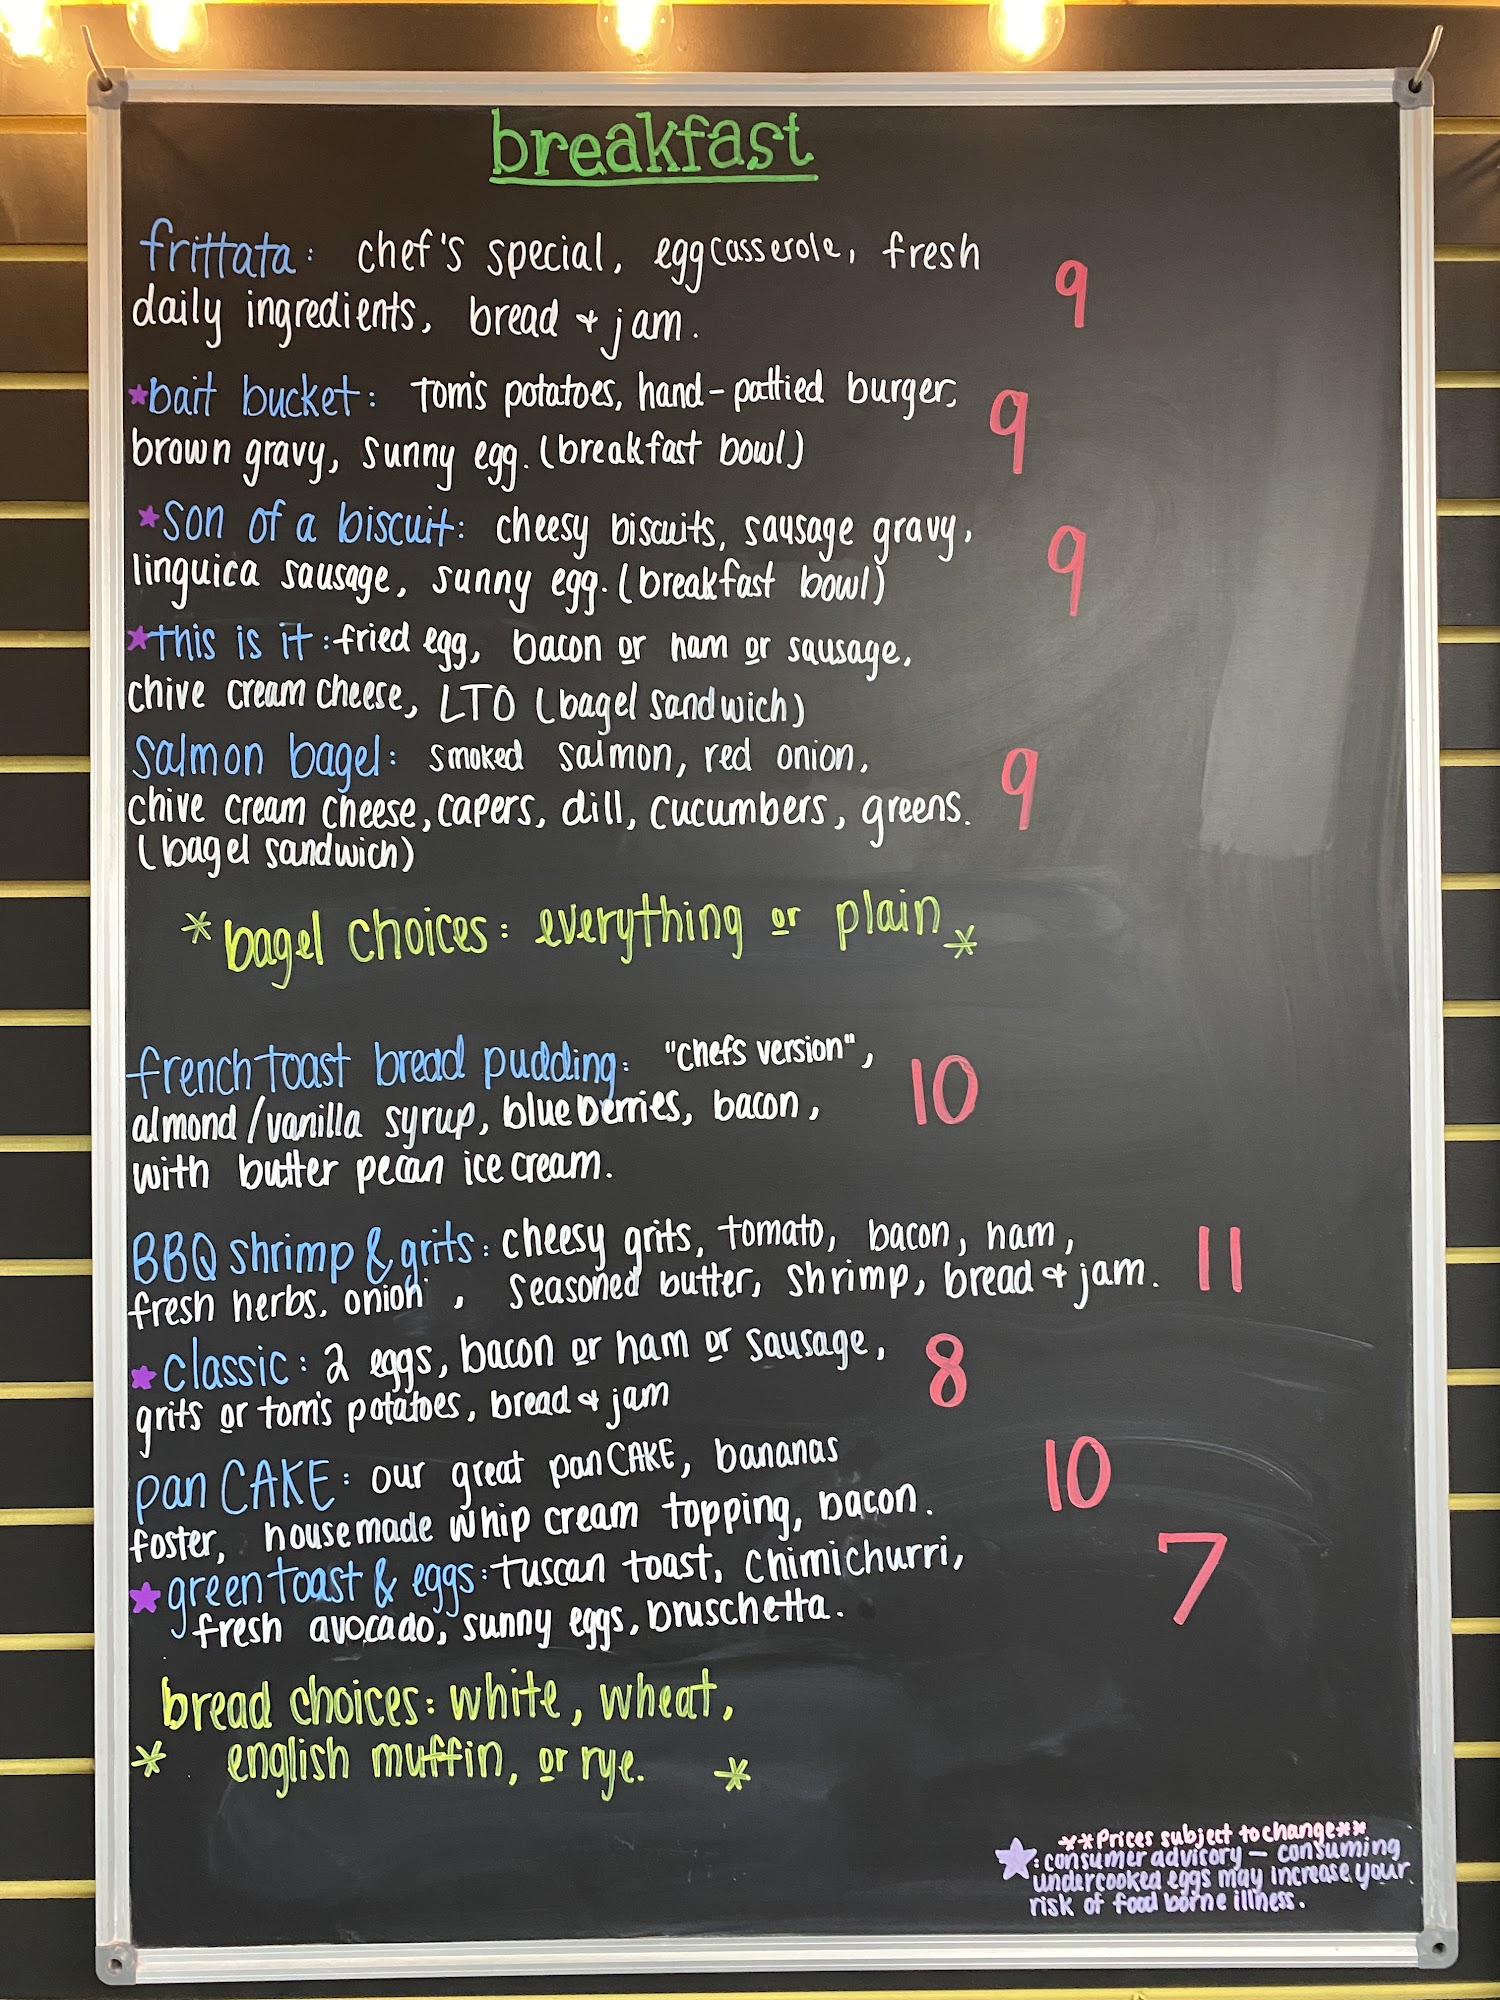 breakfast
frittata: chef's special, egg casserole, fresh
daily ingredients, bread & jam. 9
★bait bucket: Tom's potatoes, hand-pattied burger, 9
brown gravy, sunny egg. (breakfast bowl)
★son of a biscuit: cheesy biscuits, sausage gravy, 9
linguica sausage, sunny egg. (breakfast bowl)
★this is it: fried egg, bacon or ham or sausage,
chive cream cheese, LTO (bagel sandwich)
salmon bagel: smoked salmon, red onion, 9
chive cream cheese, capers, dill, cucumbers, greens.
(bagel sandwich)
*bagel choices: everything or plain*
french toast bread pudding: "chefs version", 10
almond/vanilla syrup, blueberries, bacon,
with butter pecan ice cream.
BBQ shrimp & grits: cheesy grits, tomato, bacon, ham, 11
fresh herbs, onion, seasoned butter, shrimp, bread & jam.
★classic: 2 eggs, bacon or ham or sausage, 8
grits or tom's potatoes, bread & jam
pan CAKE: our great panCAKE, bananas 10
foster, housemade whip cream topping, bacon.
★green toast & eggs: tuscan toast, chimichurri, 7
fresh avocado, sunny eggs, bruschetta.
bread choices: white, wheat,
* english muffin, or rye. *
**Prices subject to change**
★: consumer advisory – consuming
undercooked eggs may increase your
risk of food borne illness.